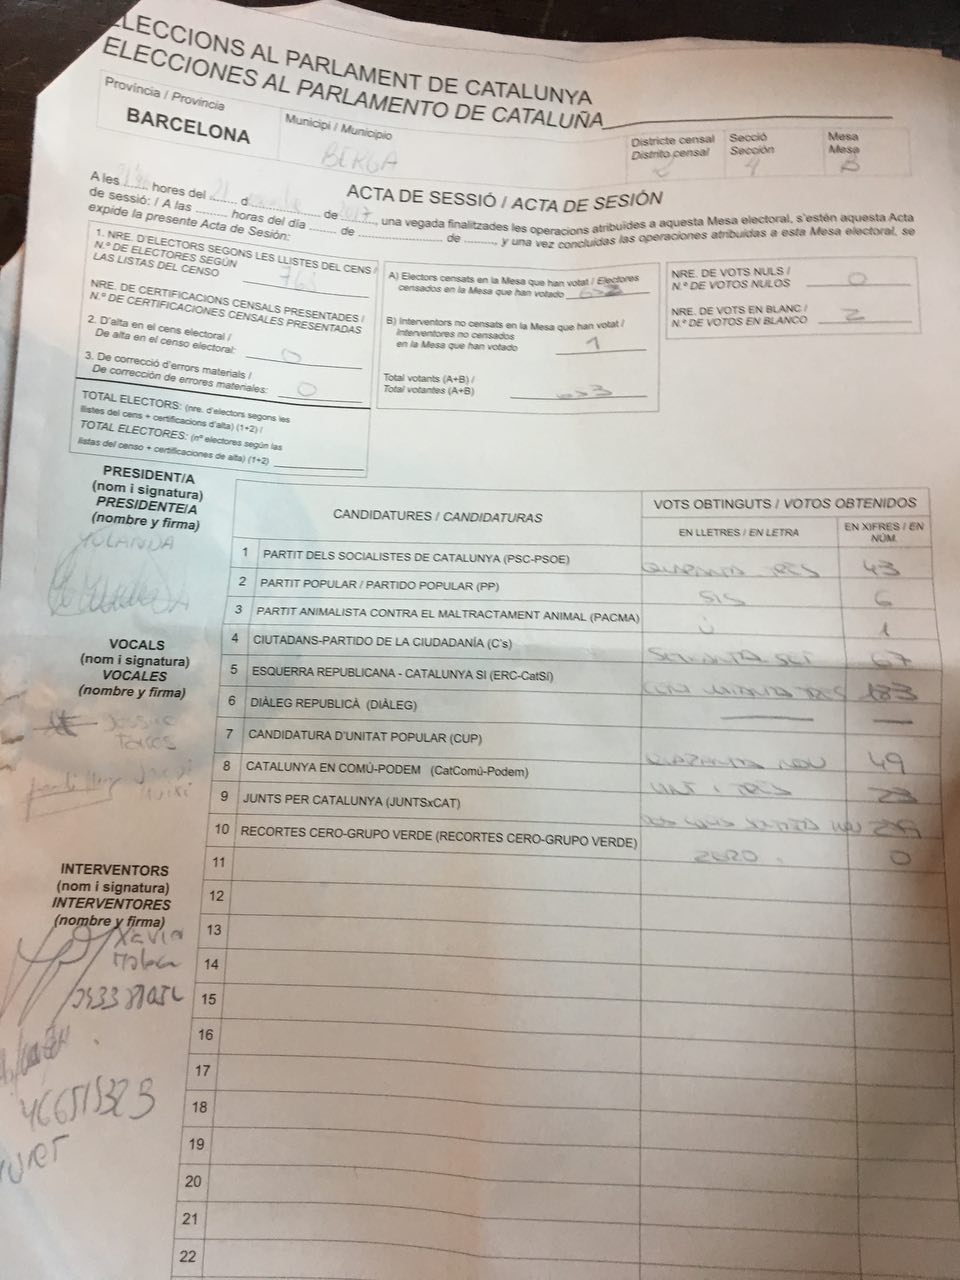 ELECCIONS AL PARLAMENT DE CATALUNYA
ELECCIONES AL PARLAMENTO DE CATALUÑA
Província / Provincia
BARCELONA
Municipi / Municipio
BERGA
Districte censal
Distrito censal
Secció
Sección
Mesa
Mesa
B
ACTA DE SESSIÓ / ACTA DE SESIÓN
A les ........ hores del ....... d ................... de ........, una vegada finalitzades les operacions atribuïdes a aquesta Mesa electoral, s'estén aquesta Acta
de sessió: / A las ......... horas del día ........ de ........................ de ........, y una vez concluidas las operaciones atribuidas a esta Mesa electoral, se
expide la presente Acta de Sesión:
1. NRE. D'ELECTORS SEGONS LES LLISTES DEL CENS /
N.º DE ELECTORES SEGÚN
LAS LISTAS DEL CENSO
NRE. DE CERTIFICACIONS CENSALS PRESENTADES /
N.º DE CERTIFICACIONES CENSALES PRESENTADAS
2. D'alta en el cens electoral /
De alta en el censo electoral: 0
3. De correcció d'errors materials /
De corrección de errores materiales: 0
TOTAL ELECTORS: (nre. d'electors segons les
llistes del cens + certificacions d'alta) (1+2) /
TOTAL ELECTORES: (nº electores según las
listas del censo + certificaciones de alta) (1+2)
A) Electors censats en la Mesa que han votat / Electores
censados en la Mesa que han votado
B) Interventors no censats en la Mesa que han votat /
Interventores no censados
en la Mesa que han votado 1
Total votants (A+B) /
Total votantes (A+B)
NRE. DE VOTS NULS /
N.º DE VOTOS NULOS 0
NRE. DE VOTS EN BLANC /
N.º DE VOTOS EN BLANCO 2
PRESIDENT/A
(nom i signatura)
PRESIDENTE/A
(nombre y firma)
YOLANDA
VOCALS
(nom i signatura)
VOCALES
(nombre y firma)
INTERVENTORS
(nom i signatura)
INTERVENTORES
(nombre y firma)
XAVIER
CANDIDATURES / CANDIDATURAS
VOTS OBTINGUTS / VOTOS OBTENIDOS
EN LLETRES / EN LETRA
EN XIFRES / EN NÚM.
1 PARTIT DELS SOCIALISTES DE CATALUNYA (PSC-PSOE) QUARANTA TRES 43
2 PARTIT POPULAR / PARTIDO POPULAR (PP) SIS 6
3 PARTIT ANIMALISTA CONTRA EL MALTRACTAMENT ANIMAL (PACMA) U 1
4 CIUTADANS-PARTIDO DE LA CIUDADANÍA (C's) 67
5 ESQUERRA REPUBLICANA - CATALUNYA SI (ERC-CatSI) 183
6 DIÀLEG REPUBLICÀ (DIÀLEG)
7 CANDIDATURA D'UNITAT POPULAR (CUP) QUARANTA NOU 49
8 CATALUNYA EN COMÚ-PODEM (CatComú-Podem) VINT I TRES 23
9 JUNTS PER CATALUNYA (JUNTSxCAT)
10 RECORTES CERO-GRUPO VERDE (RECORTES CERO-GRUPO VERDE) ZERO 0
11
12
13
14
15
16
17
18
19
20
21
22